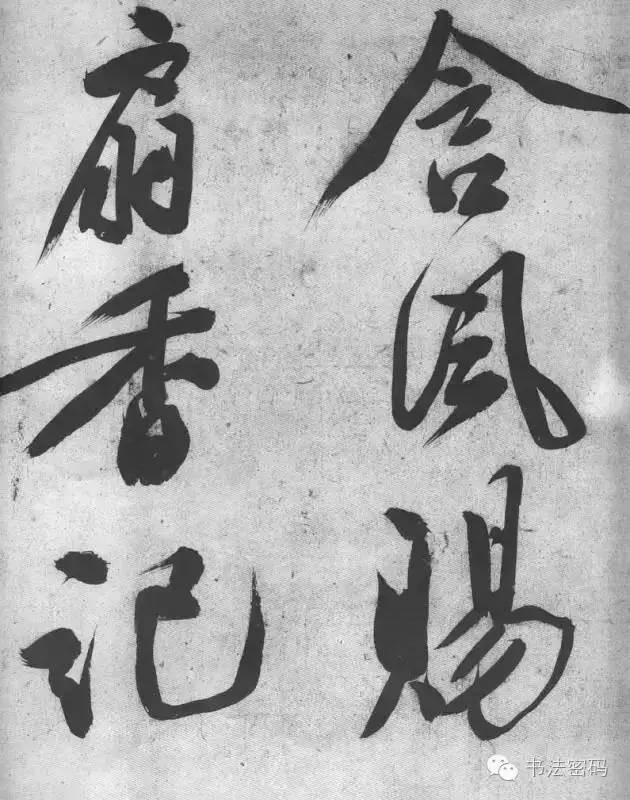 含風賜
扇香記
书法密码